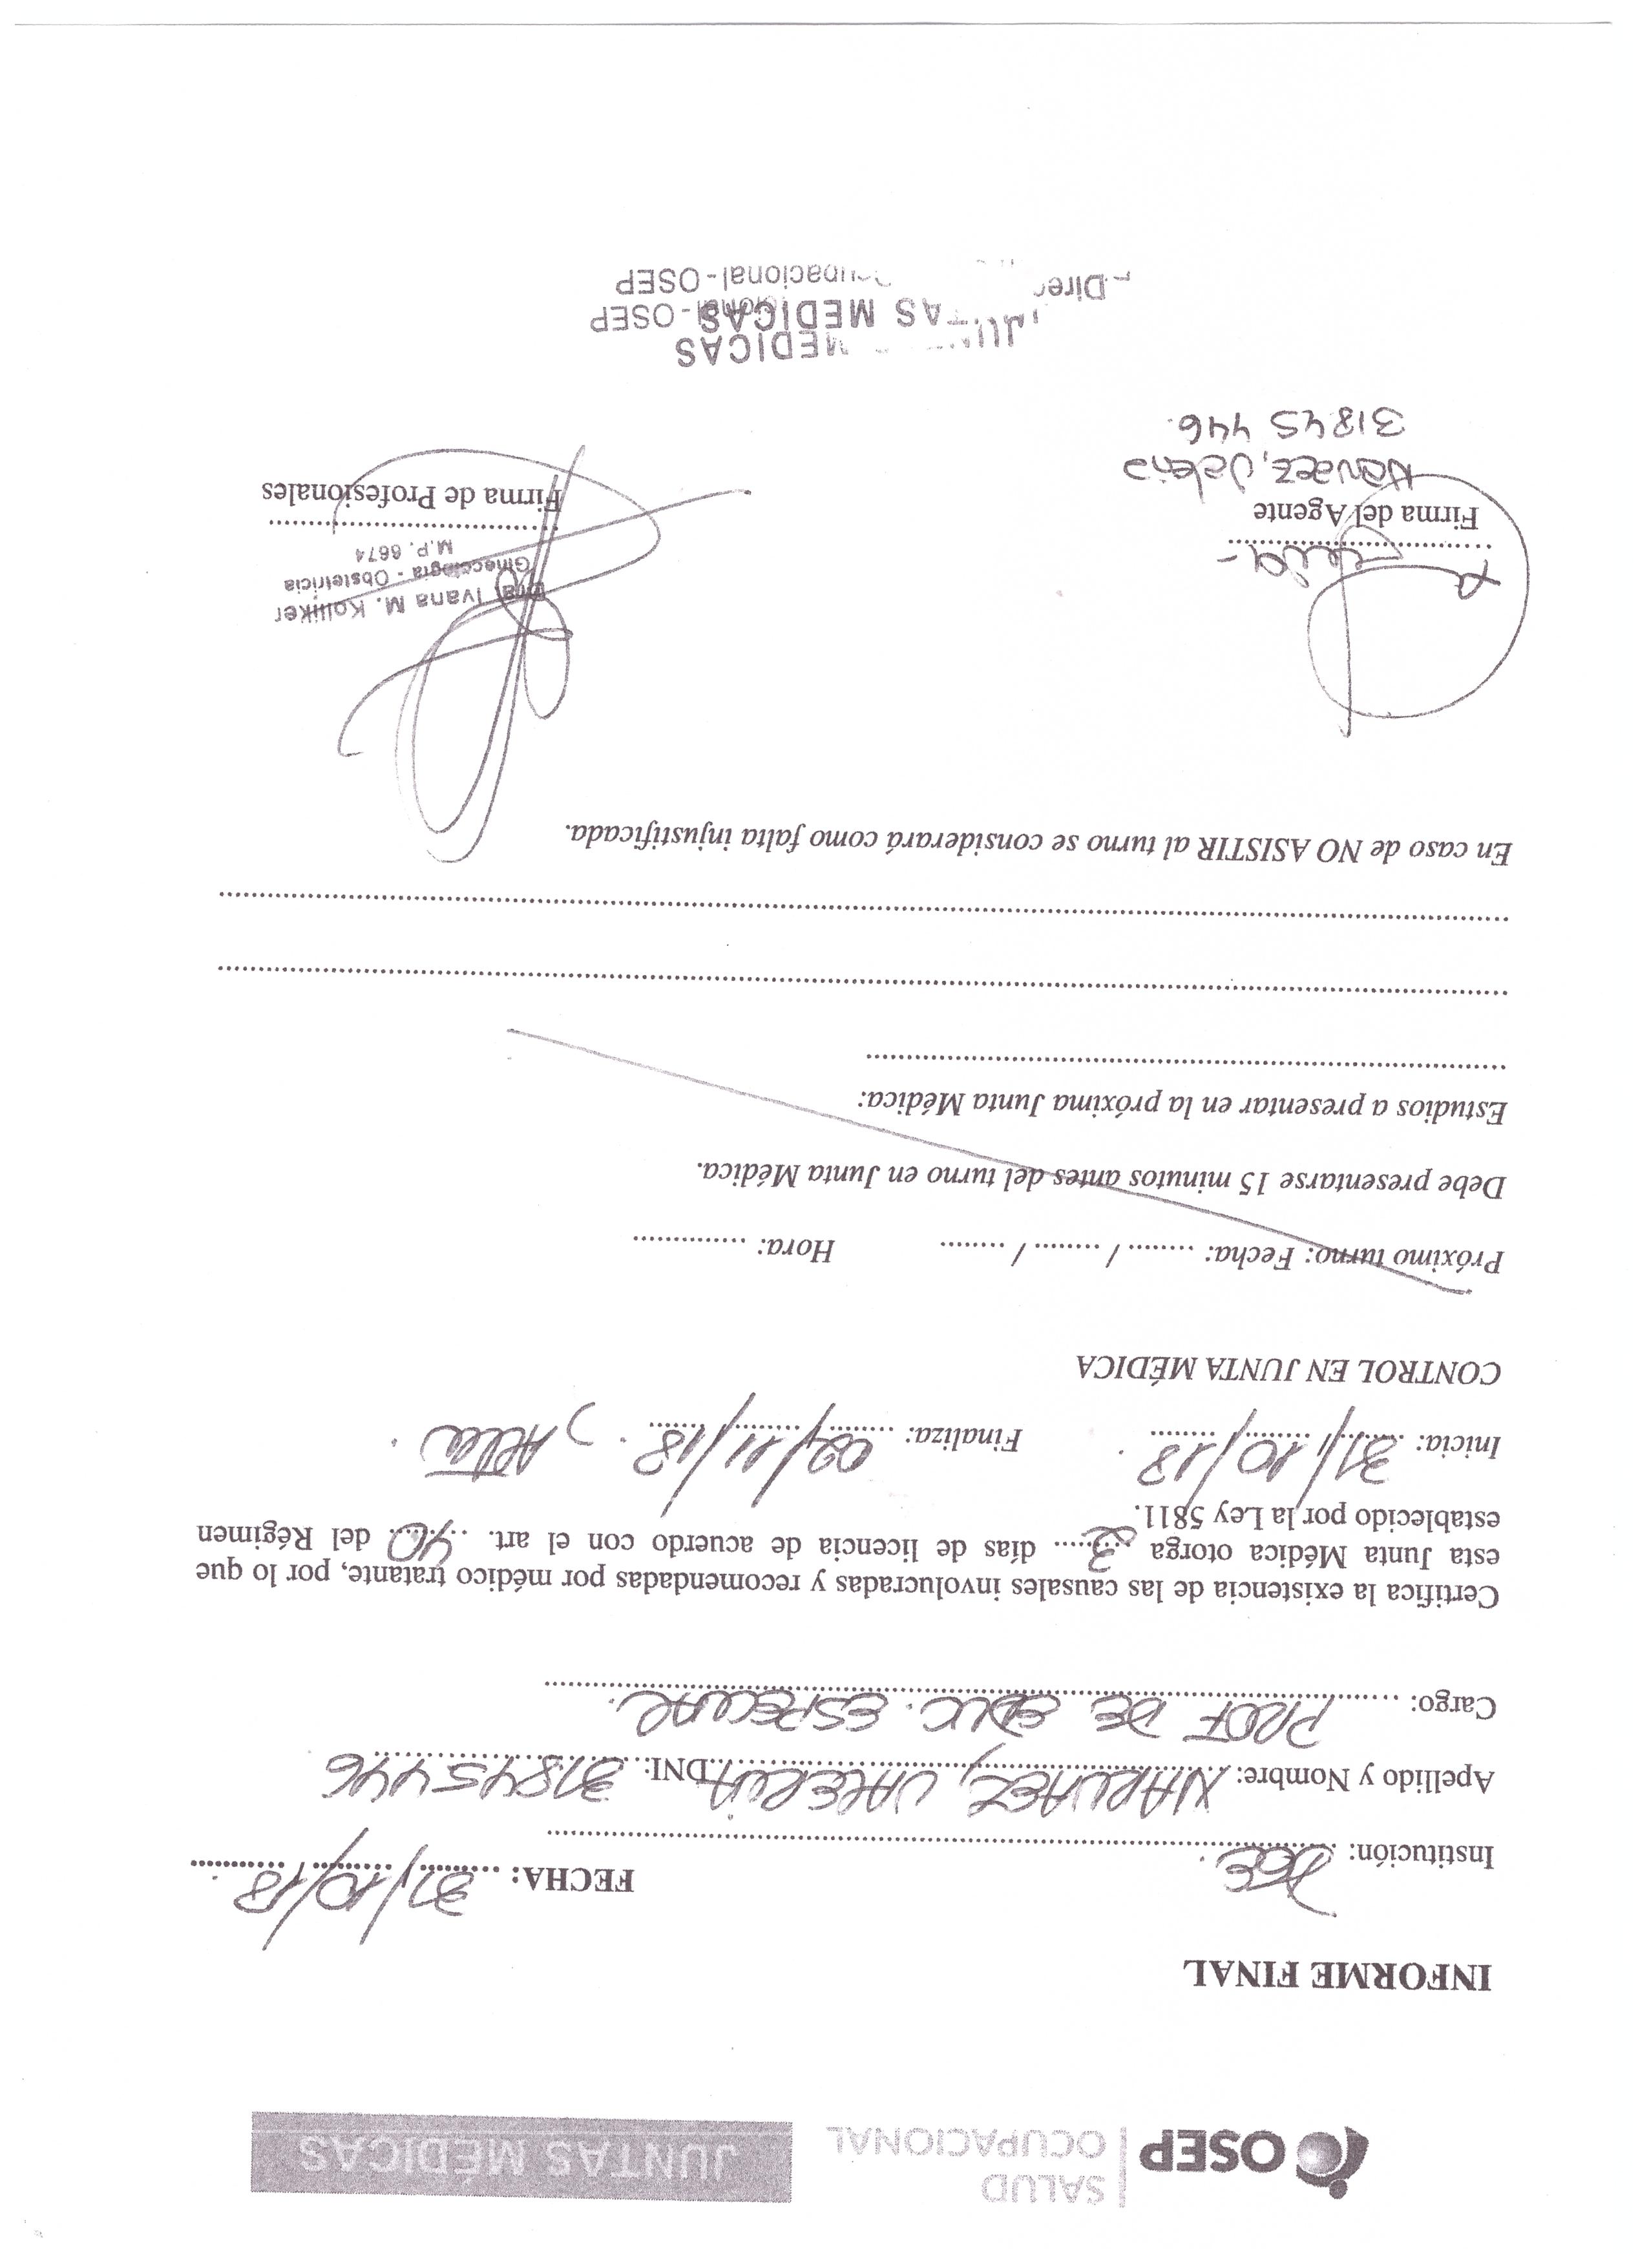 OSEP
SALUD
OCUPACIONAL
JUNTAS MEDICAS
INFORME FINAL
FECHA: 31/10/18.
Institución: DGE.
Apellido y Nombre: NARVAEZ, VALERIA DNI: 31845446
Cargo: PROF DE EDUC. ESPECIAL.
Certifica la existencia de las causales involucradas y recomendadas por médico tratante, por lo que
esta Junta Médica otorga 3 días de licencia de acuerdo con el art. 40 del Régimen
establecido por la Ley 5811.
Inicia: 31/10/18. Finaliza: 02/11/18. Alta.
CONTROL EN JUNTA MÉDICA
Próximo turno: Fecha: ........ / ......... / ........ Hora: ...............
Debe presentarse 15 minutos antes del turno en Junta Médica.
Estudios a presentar en la próxima Junta Médica:
En caso de NO ASISTIR al turno se considerará como falta injustificada.
Dra. Ivana M. Kolliker
Ginecología - Obstetricia
M.P. 6674
Firma del Agente
Firma de Profesionales
Narvaez, Valeria
31845 446.
MEDICAS
JUNTAS MEDICAS
-OSEP
Ocupacional-OSEP